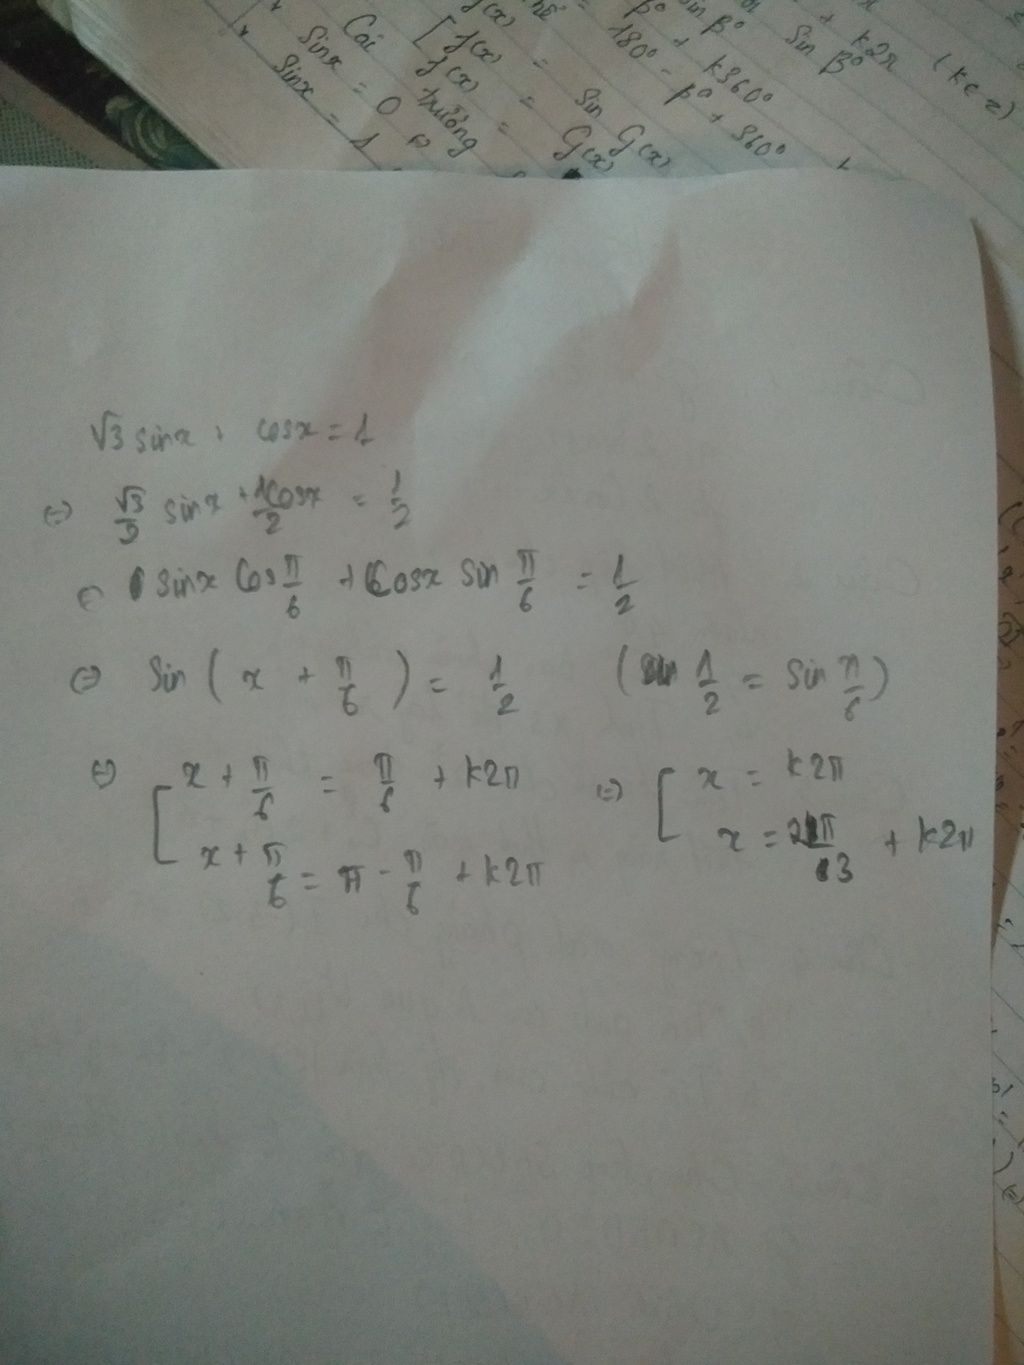 β° + k360°
sin β°
sin β°
+ k2π (k∈z)
180° - β° + 360°
f(x) = sin G(x)
[ f(x) = G(x)
f(x) =
Các trường
sinx = 0 ⇔
sinx = 1
√3 sinx + cosx = 1
⇔ √3/3 sinx + 1cosx/2 = 1/2
⇔ sinx cos π/6 + cosx sin π/6 = 1/2
⇔ sin ( x + π/6 ) = 1/2 (sin 1/2 = sin π/6)
⇔ [ x + π/6 = π/6 + k2π ⇔ [ x = k2π
x + π/6 = π - π/6 + k2π x = 2π/3 + k2π